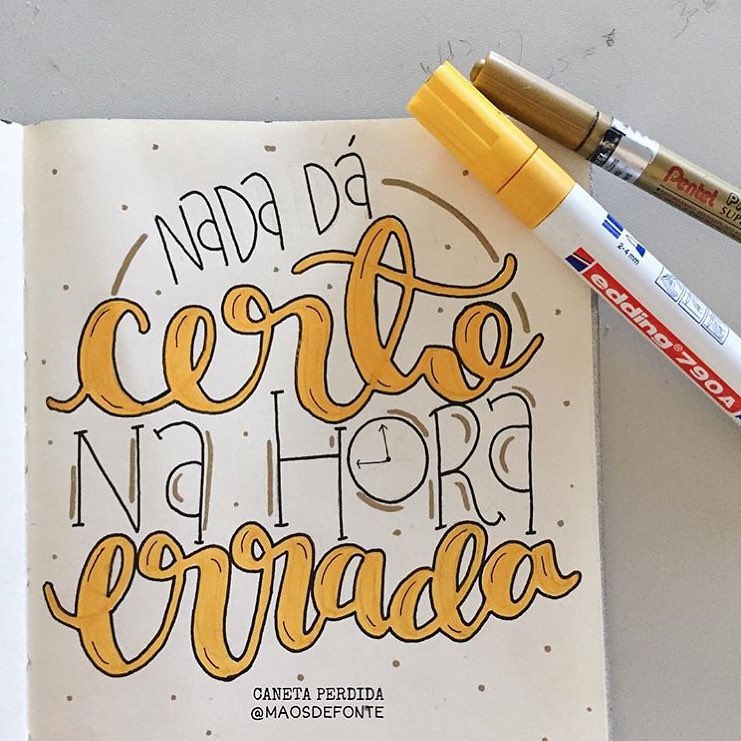 NaDa Dá
certo
Na HORa
errada
CANETA PERDIDA
@MAOSDEFONTE
Pentel
2-4 mm
edding® 790